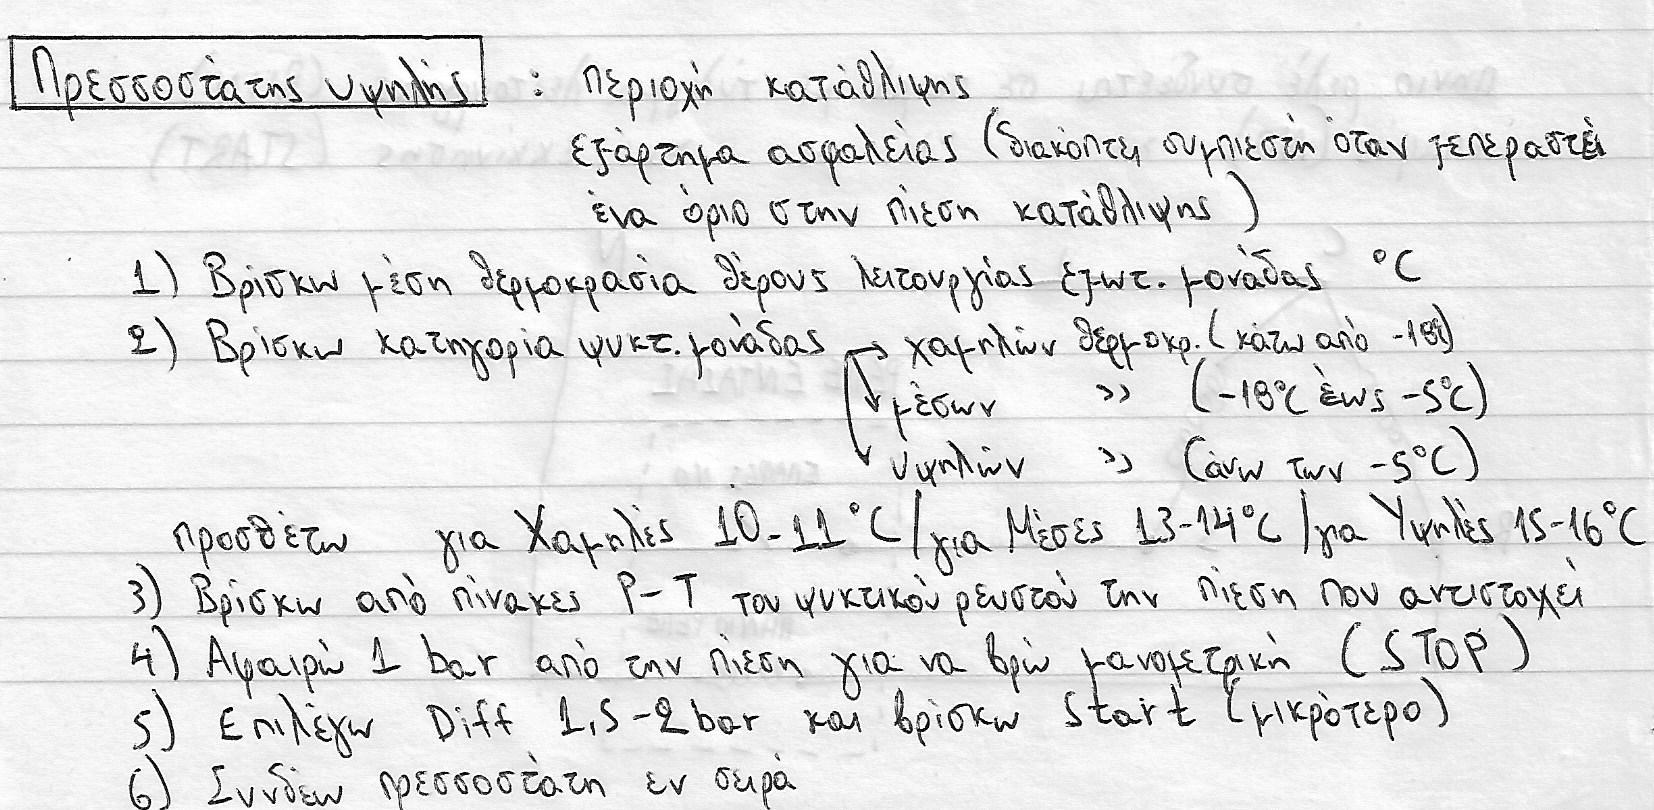 Πρεσσοστάτης υψηλής : Περιοχή κατάθλιψης
εξάρτημα ασφαλείας (διακόπτει συμπιεστή όταν ξεπεραστεί
ένα όριο στην πίεση κατάθλιψης)
1) Βρίσκω μέση θερμοκρασία θέρους λειτουργίας εξωτ. μονάδας °C
2) Βρίσκω κατηγορία ψυκτ. μονάδας → χαμηλών θερμοκρ. (κάτω από -18°)
μέσων » (-18°C έως -5°C)
υψηλών » (άνω των -5°C)
προσθέτω για Χαμηλές 10-11°C / για Μέσες 13-14°C / για Υψηλές 15-16°C
3) Βρίσκω από πίνακες P-T του ψυκτικού ρευστού την πίεση που αντιστοιχεί
4) Αφαιρώ 1 bar από την πίεση για να βρω μανομετρική (STOP)
5) Επιλέγω Diff 1,5-2bar και βρίσκω Start (μικρότερο)
6) Συνδέω πρεσσοστάτη εν σειρά